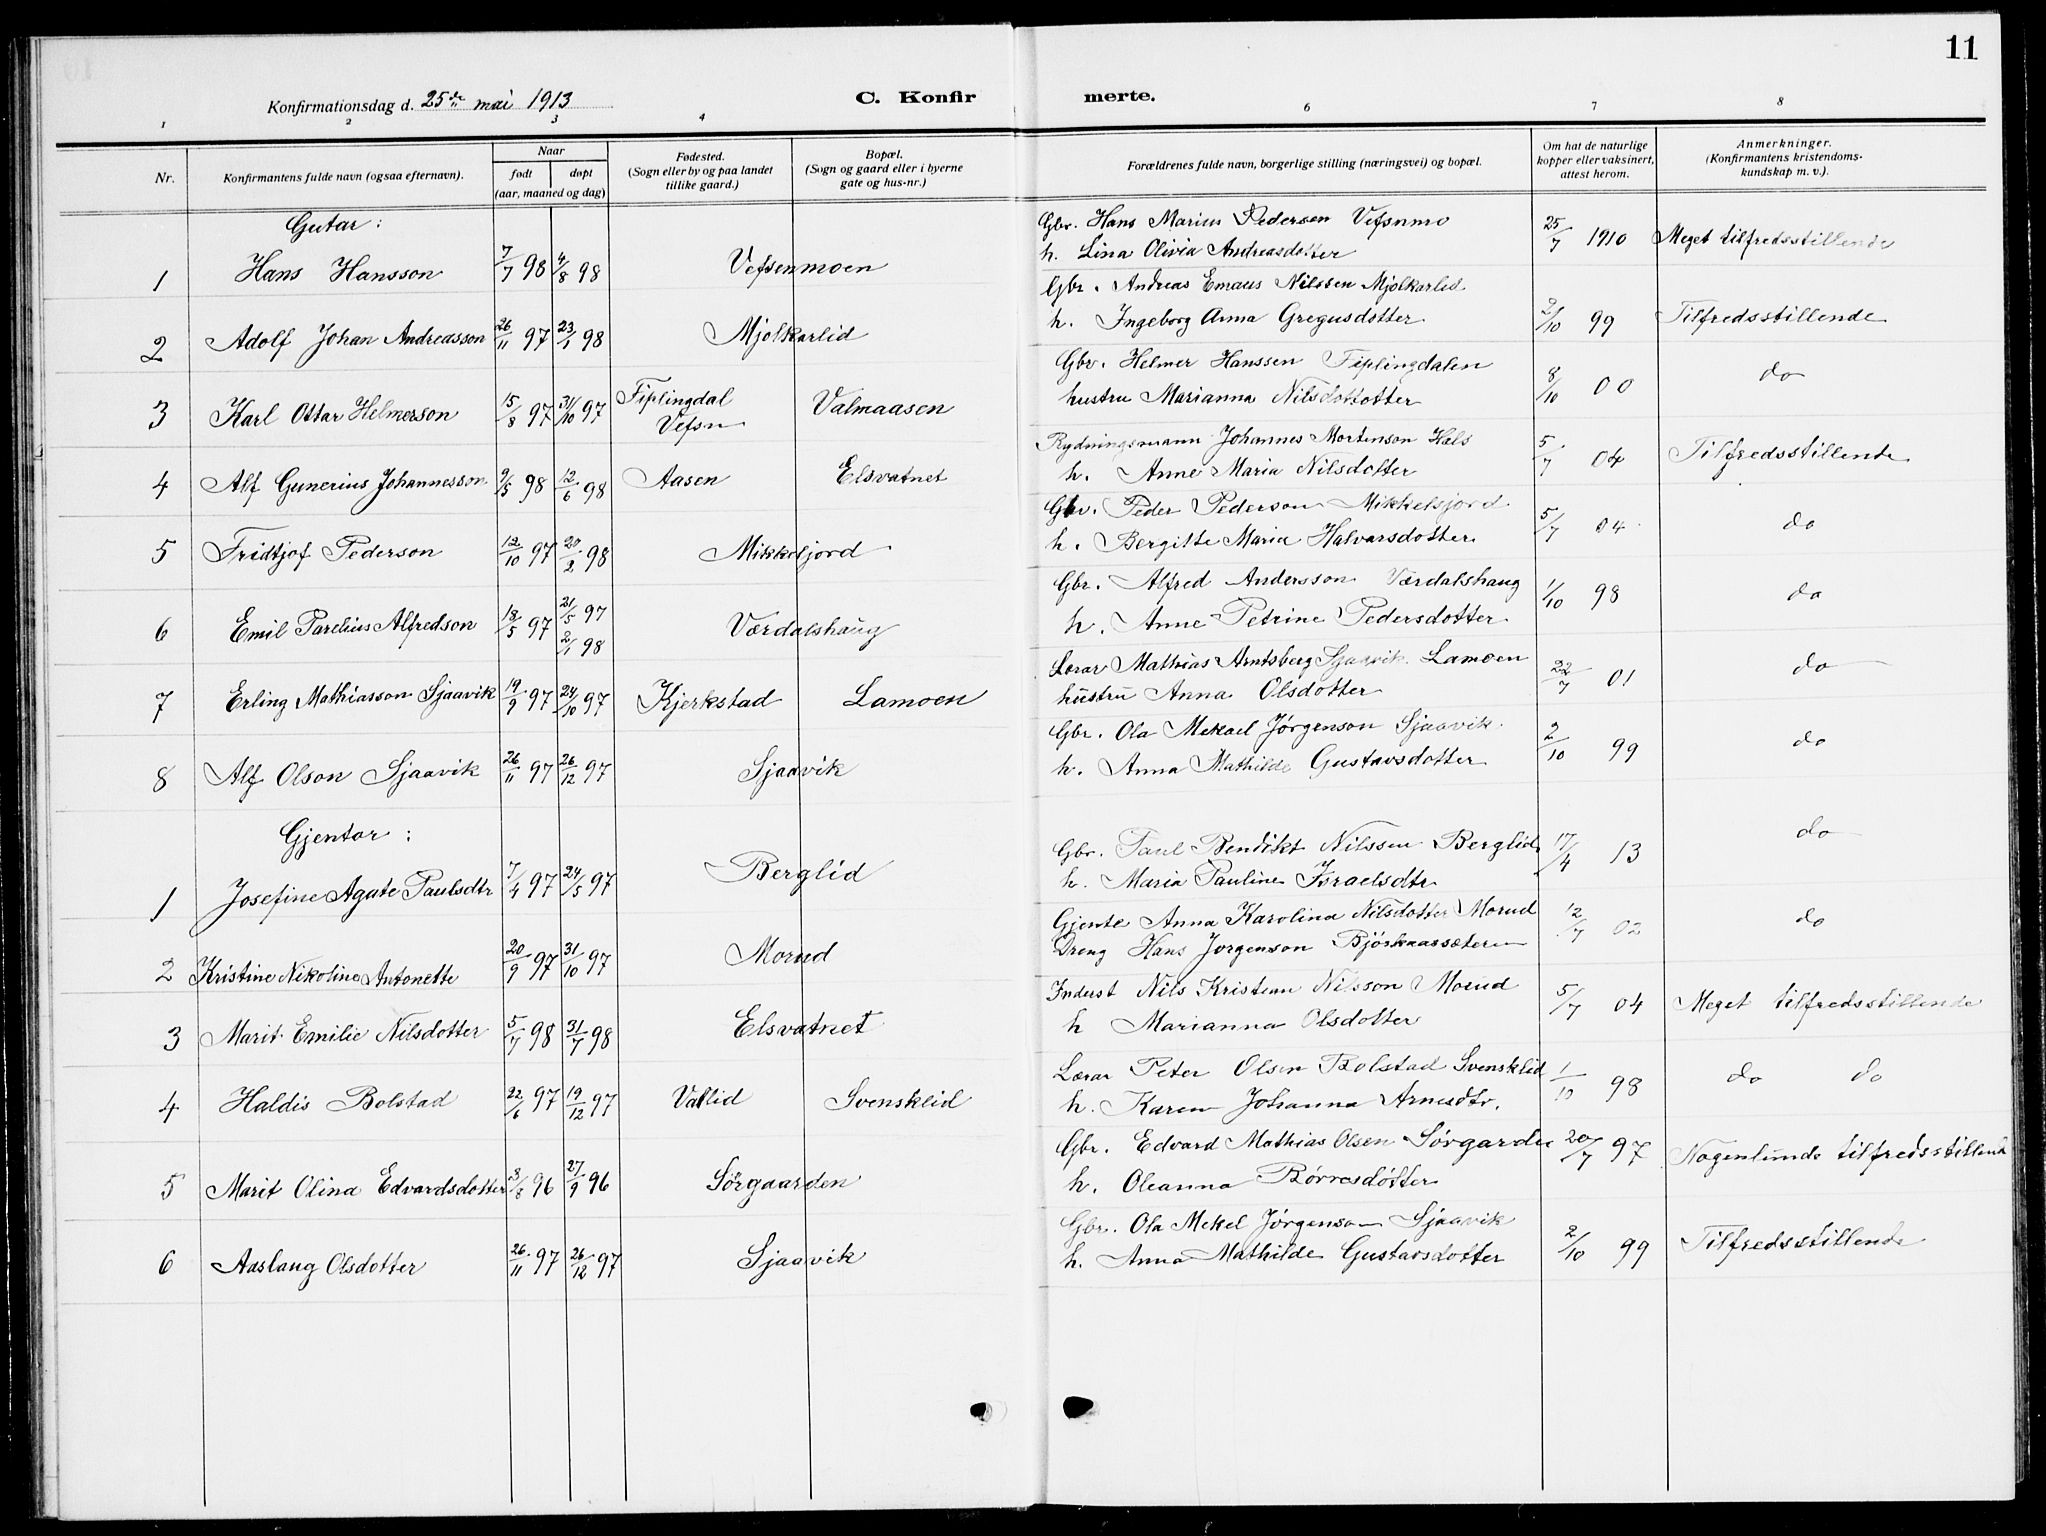 11
Konfirmationsdag d. 25de mai 1913
C. Konfir merte.
1 2 3 4 6 7 8
Nr. Konfirmantens fulde navn (ogsaa efternavn). Naar født døpt (aar, maaned og dag) Fødested. (Sogn eller by og paa landet tillike gaard.) Bopæl. (Sogn og gaard eller i byerne gate og hus-nr.) Forældrenes fulde navn, borgerlige stilling (næringsvei) og bopæl. Om hat de naturlige kopper eller vaksinert, attest herom. Anmerkninger. (Konfirmantens kristendoms-kundskap m. v.).
Gutar:
1 Hans Hansson 7/7 98 4/8 98 Vefsenmoen Gbr. Hans Marius Pedersen Vefsnmo 25/7 1910 Meget tilfredsstillende
h. Lina Olivia Andreasdotter
2 Adolf Johan Andreasson 26/11 97 23/1 98 Mjolkarlid Gbr. Andreas Emaus Nilssen Mjolkarlid 2/10 99 Tilfredsstillende
h. Ingeborg Anna Gregusdotter
3 Karl Ottar Helmerson 15/8 97 31/10 97 Fiplingdal Vefsn Valmaasen Gbr. Helmer Hanssen Fiplingdalen 8/10 00 do
hustru Marianna Nilsdottotter
4 Alf Gunerius Johannesson 9/5 98 12/6 98 Aasen Elsvatnet Rydningsmann Johannes Mortenson Hals 5/7 04 Tilfredsstillende
h. Anne Maria Nilsdotter
5 Fridtjof Pederson 12/10 97 20/2 98 Mikkeljord Gbr. Peder Pederson Mikkelsjord 5/7 04 do
h. Bergitte Maria Halvarsdotter
6 Emil Parelius Alfredson 18/5 97 21/5 97 2/1 98 Værdalshaug Gbr. Alfred Andersson Værdalshaug 1/10 98 do
h. Anne Petrine Pedersdotter
7 Erling Mathiasson Sjaavik 19/9 97 24/10 97 Kjerkstad Lamoen Lærar Mathias Arntsberg Sjaavik Lamoen 22/7 01 do
hustru Anna Olsdotter
8 Alf Olson Sjaavik 26/11 97 26/12 97 Sjaavik Gbr. Ola Mekael Jørgenson Sjaavik 2/10 99 do
h. Anna Mathilde Gustavsdotter
Gjentor:
1 Josefine Agate Paulsdtr 7/4 97 24/5 97 Berglid Gbr. Paul Bendikt Nilssen Berglid 17/4 13 do
h. Maria Pauline Israelsdtr
2 Kristine Nikoline Antonette 20/9 97 31/10 97 Morud Gjente Anna Karolina Nilsdotter Morud 12/7 02 do
Dreng Hans Jørgenson Bjørknaassæteren
3 Marit Emilie Nilsdotter 5/7 98 31/7 98 Elsvatnet Inderst Nils Kristian Nilsson Morud 5/7 04 Meget tilfredsstillende
h Marianna Olsdotter
4 Haldis Bolstad 22/6 97 19/12 97 Vallid Svensklid Lærar Peter Olsen Bolstad Svensklid 1/10 98 do do
h. Karen Johanna Arnesdtr.
5 Marit Olina Edvardsdotter 3/8 96 27/9 96 Sørgaarden Gbr. Edvard Mathias Olsen Sørgarden 20/7 97 Nogenlunde tilfredsstillend
h. Oleanna Børresdotter
6 Aaslaug Olsdotter 26/11 97 26/12 97 Sjaavik Gbr. Ola Mekel Jørgenson Sjaavik 2/10 99 Tilfredsstillende
h. Anna Mathilde Gustavsdotter